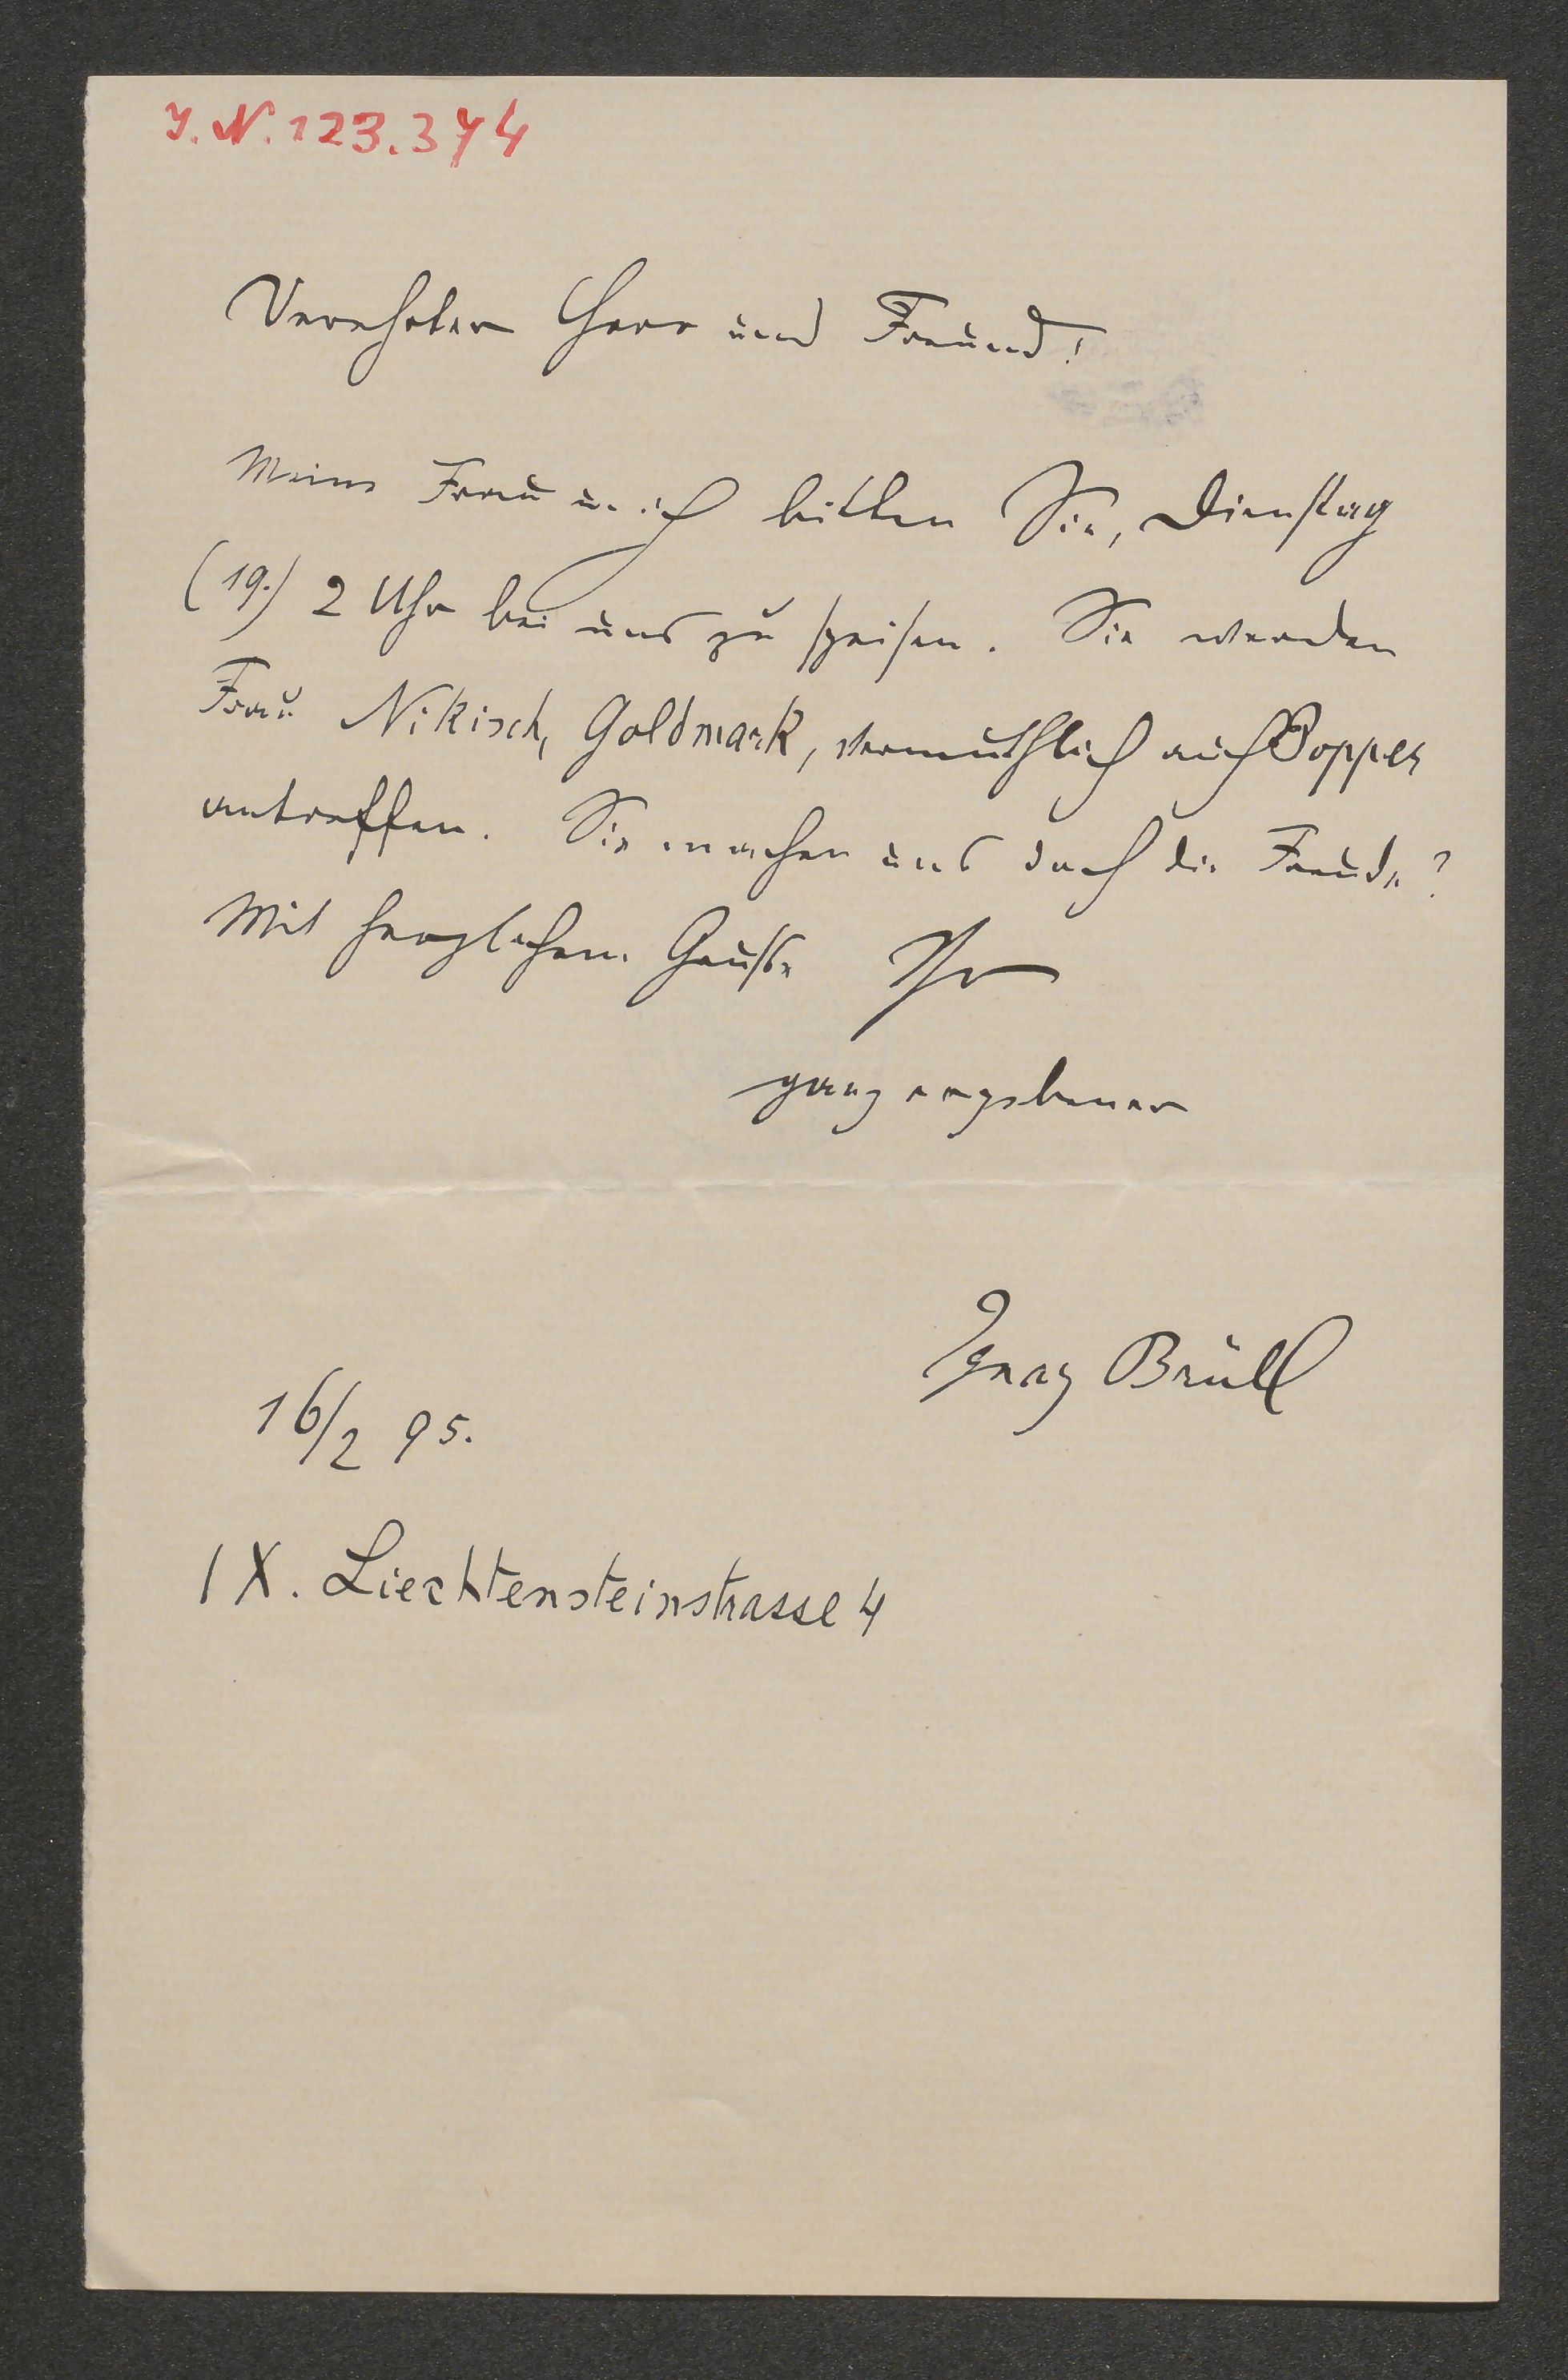 J. N. 123.374
Verehrter Herr und Freund!
Meine Frau u. ich bitten Sie, Dienstag
(19.) 2 Uhr bei uns zu speisen. Sie werden
Frau Nikisch, Goldmark, vermuthlich auch Popper
antreffen. Sie machen uns doch die Freude?
Mit herzlichem Gruße Ihr
ganz ergebener
Ignaz Brüll
16/2 95.
IX. Liechtensteinstrasse 4